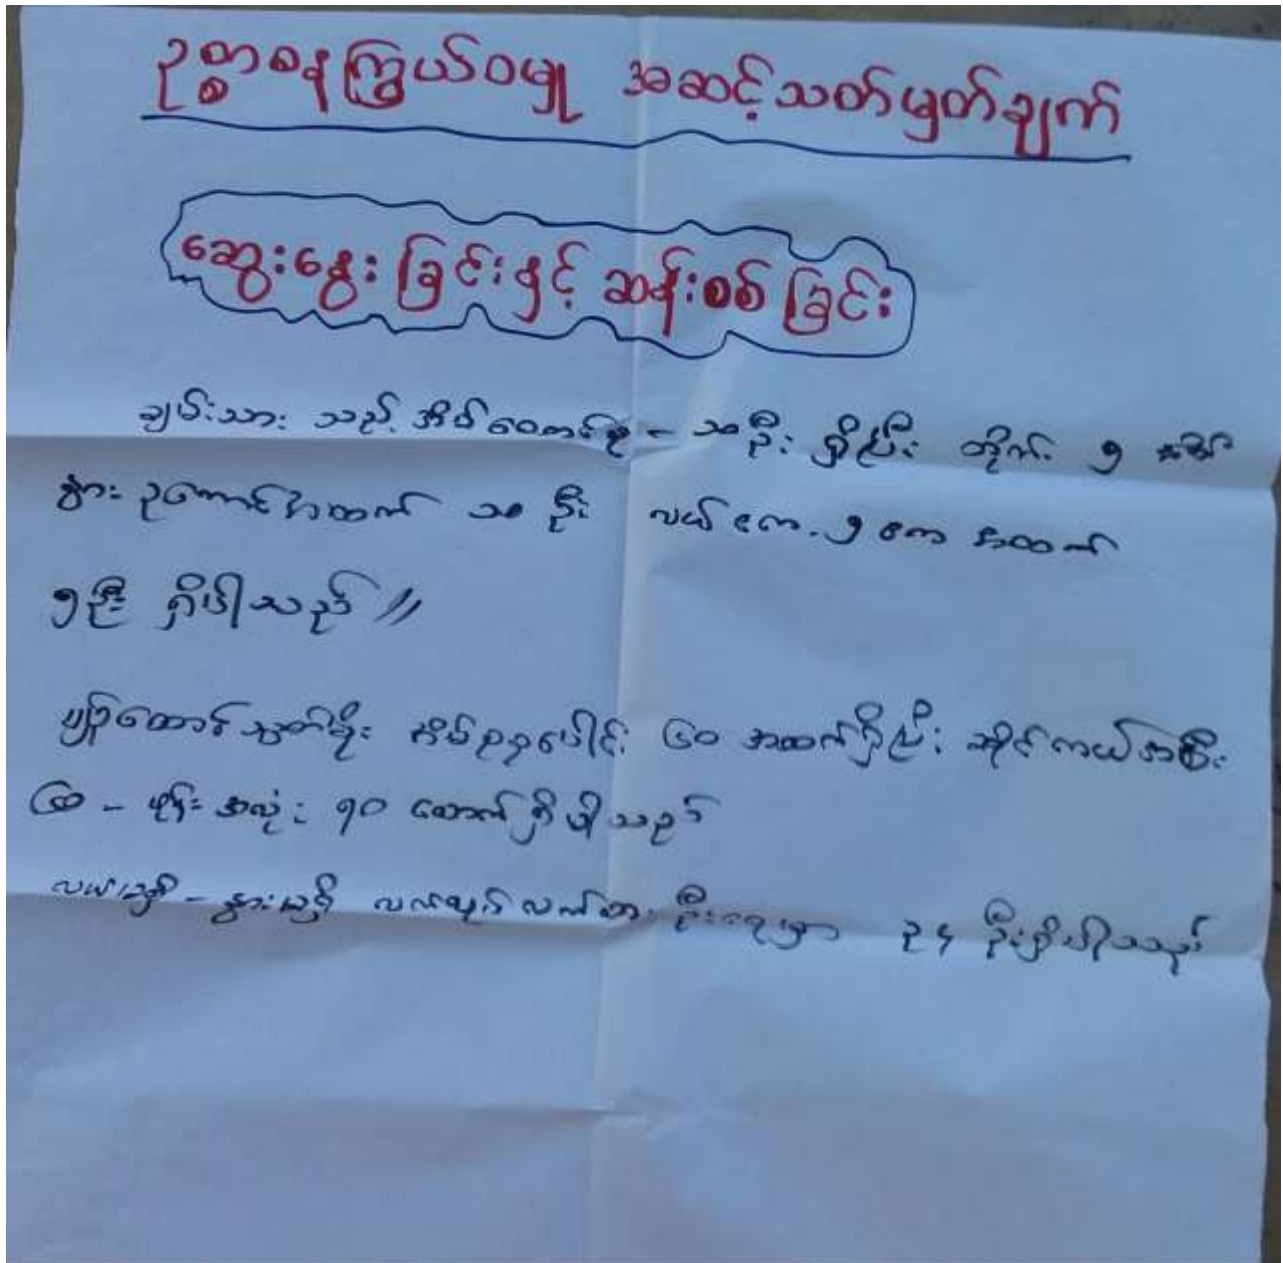 ဥစ္စာဓနကြွယ်ဝမှု အဆင့်သတ်မှတ်ချက်
ဆွေးနွေးခြင်းနှင့် ဆန်းစစ်ခြင်း
ချမ်းသာ သည့် အိမ်ထောင်စု - ၁၈ ဦး ရှိပြီး တိုက် ၅
နွား ၃ကောင်အထက် ၁၈ ဦး လယ်ဧက ၅ ဧက အထက်
၅ဦး ရှိပါသည်။
ပျဉ်ထောင်သွတ်မိုး အိမ်စုစုပေါင်း ၆၀ အထက်ရှိပြီး ဆိုင်ကယ်အစီး
၆၀ - ဖုန်း အလုံး ၇၀ လောက်ရှိပါသည်
လယ်မရှိ - နွားမရှိ လက်လုပ်လက်စား ဦးရေမှာ ၃၄ ဦးရှိပါသည်